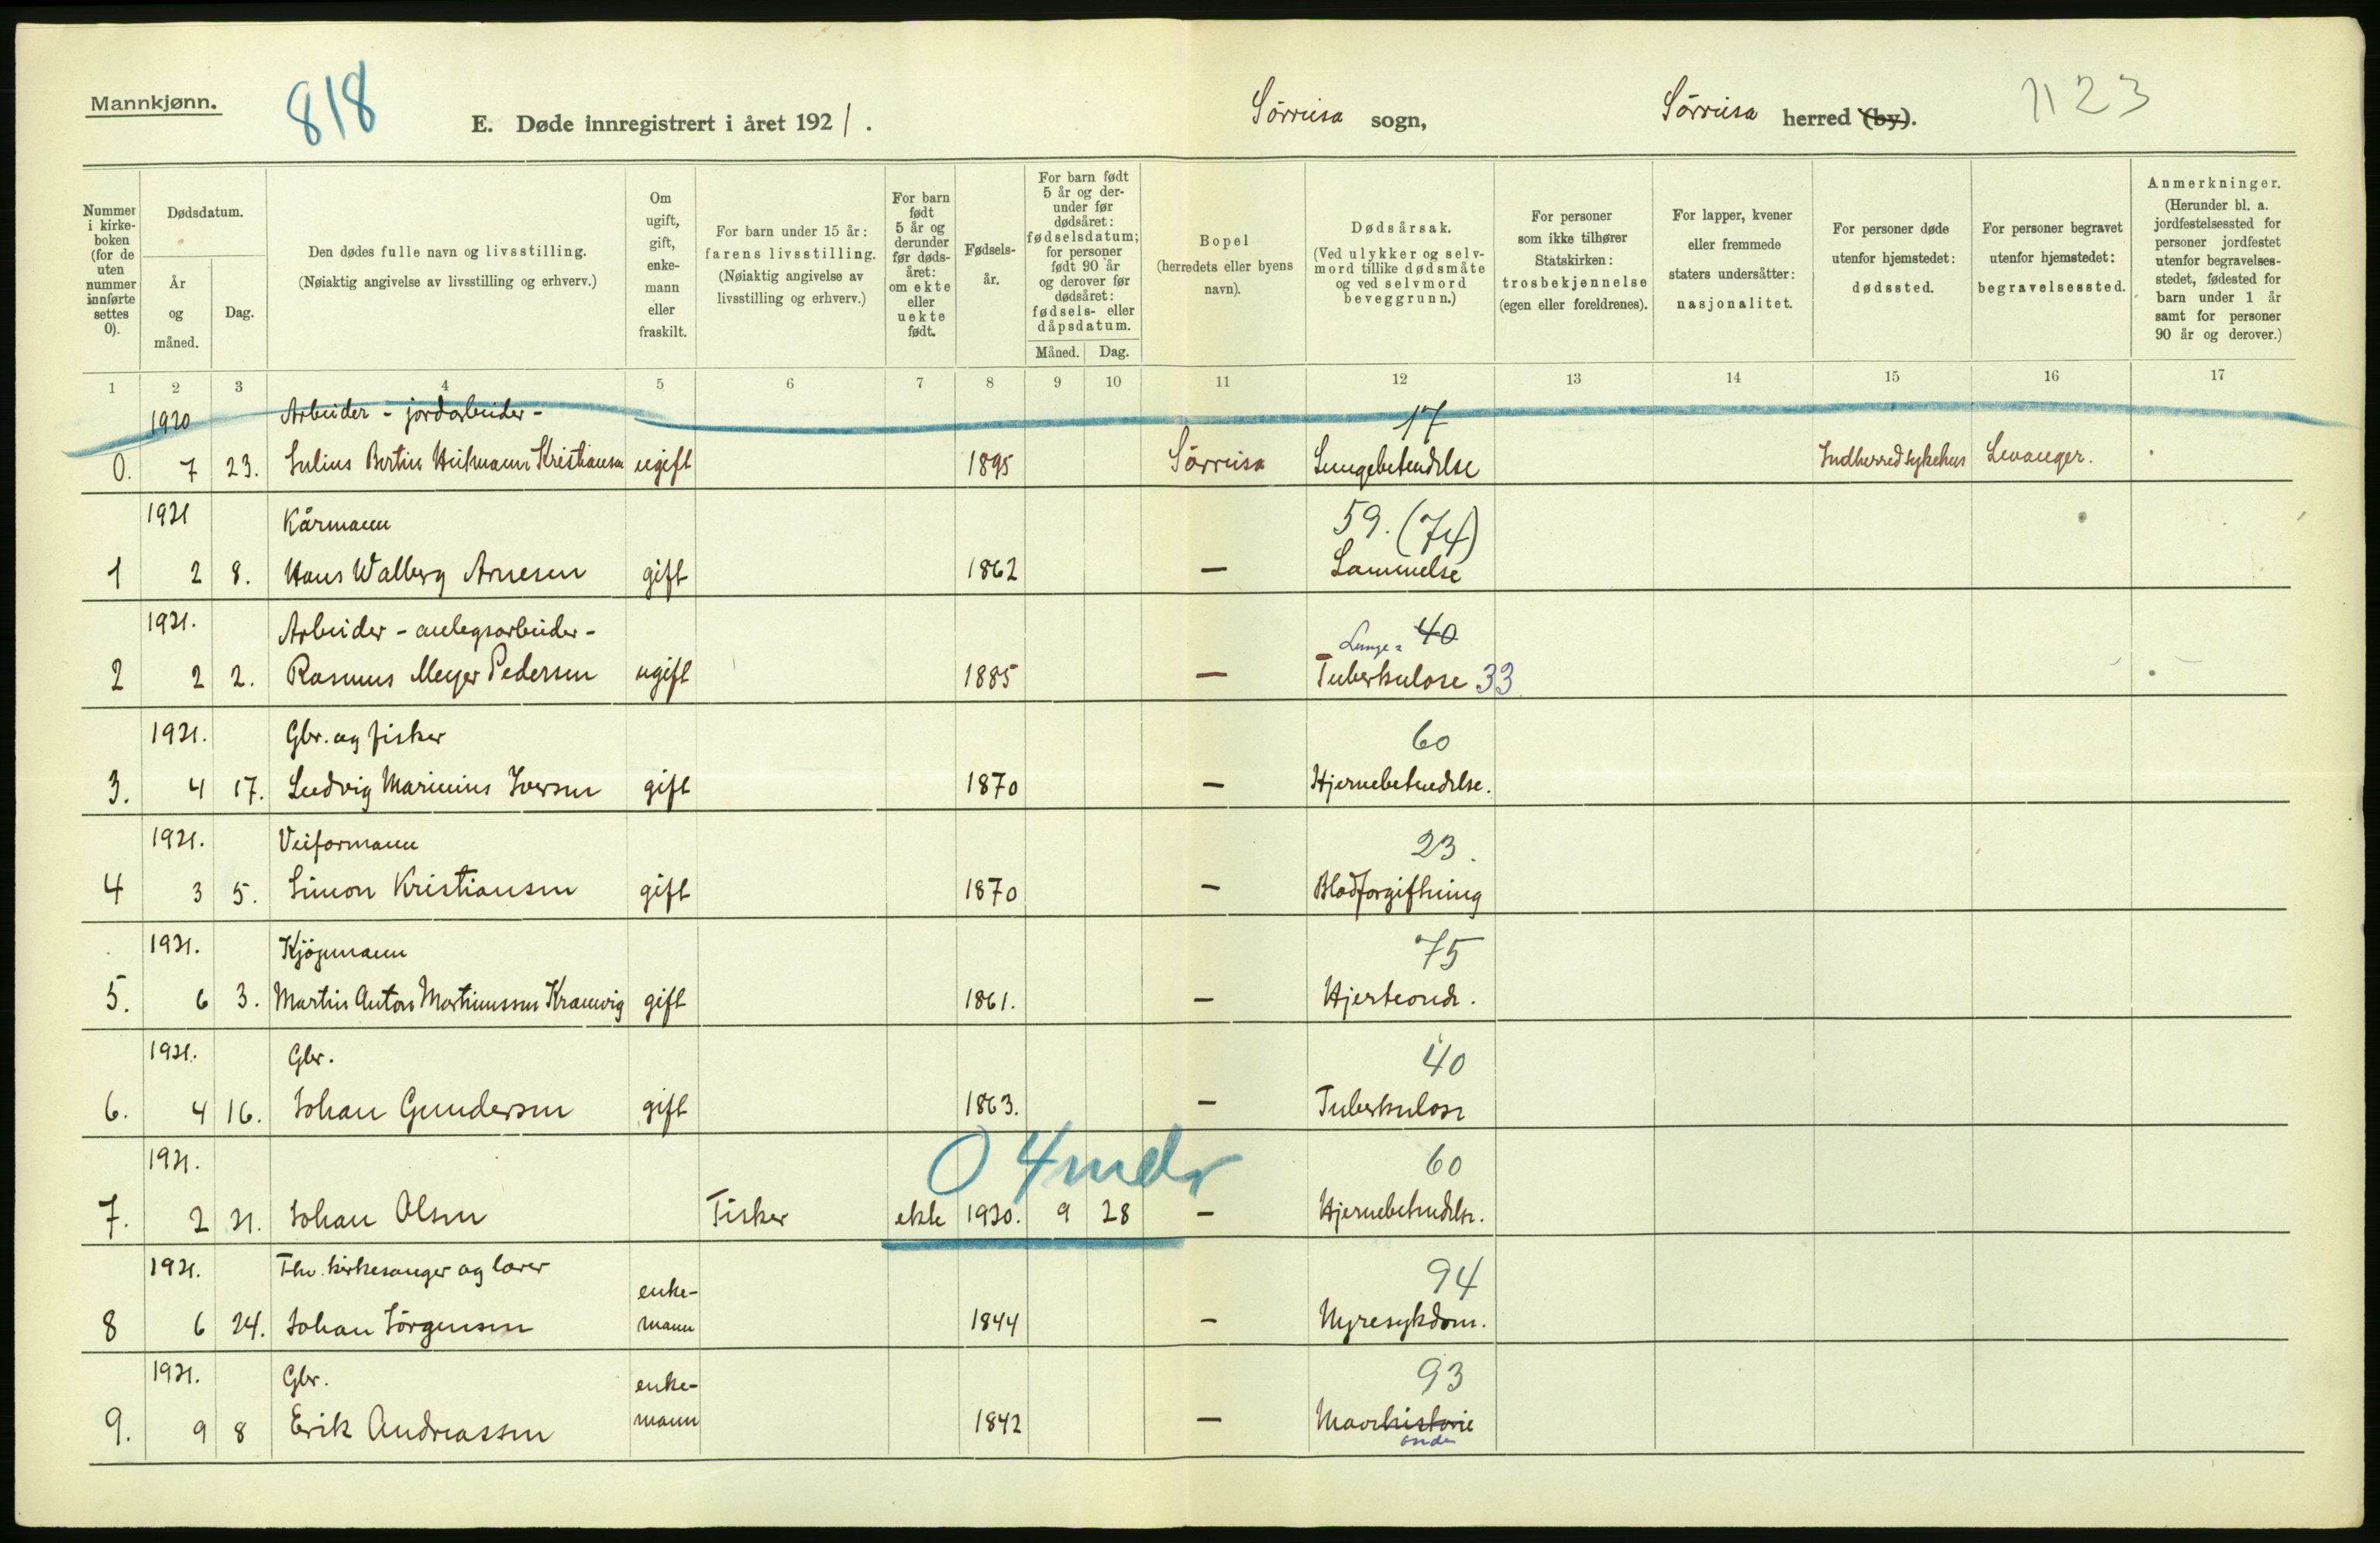 Mannkjønn.
818
E. Døde innregistrert i året 1921.
Sörreisa sogn,
Sörreisa herred (by).
1123
Nummer i kirkeboken (for de uten nummer innførte settes 0).
Dødsdatum.
År og måned.
Dag.
Den dødes fulle navn og livsstilling.
(Nøiaktig angivelse av livsstilling og erhverv.)
Om ugift, gift, enkemann eller fraskilt.
For barn under 15 år: farens livsstilling.
(Nøiaktig angivelse av livsstilling og erhverv.)
For barn født 5 år og derunder før dødsåret: om ekte eller uekte født.
Fødselsår.
For barn født 5 år og derunder før dødsåret: fødselsdatum; for personer født 90 år og derover før dødsåret: fødsels- eller dåpsdatum.
Måned. Dag.
Bopel (herredets eller byens navn).
Dødsårsak.
(Ved ulykker og selvmord tillike dødsmåte og ved selvmord beveggrunn.)
For personer som ikke tilhører Statskirken: trosbekjennelse (egen eller foreldrenes).
For lapper, kvener eller fremmede staters undersåtter: nasjonalitet.
For personer døde utenfor hjemstedet: dødssted.
For personer begravet utenfor hjemstedet: begravelsessted.
Anmerkninger.
(Herunder bl. a. jordfestelsessted for personer jordfestet utenfor begravelsesstedet, fødested for barn under 1 år samt for personer 90 år og derover.)
1 2 3 4 5 6 7 8 9 10 11 12 13 14 15 16 17
1920 Arbeider - jordarbeider - 17
0. 7 23. Julius Bertin Heitmann Kristiansen ugift 1895 Sörreisa Lungebetendelse Indherred sykehus Levanger.
1921 Kårmann 59. (74)
1 2 8. Hans Walberg Arnesen gift 1862 — Lammelse
1921. Arbeider - anlegsarbeider - Lunge= 40
2 2 2. Rasmus Meyer Pedersen ugift 1885 — Tuberkulose 33
1921. Gbr. og fisker 60
3. 4 17. Ludvig Marinius Iversen gift 1870 — Hjernebetendelse.
1921. Veiformann 23.
4 3 5. Simon Kristiansen gift 1870 — Blodforgiftning
1921. Kjöpmann 75
5. 6 3. Martin Anton Martinussen Kramvig gift 1861. — Hjerteonde.
1921. Gbr. 40
6. 4 16. Johan Gundersen gift 1863. — Tuberkulose
1921. 0 4 mdr 60
7. 2 21. Johan Olsen Fisker ekte 1920. 9 28 — Hjernebetendelse.
1921. Fhv. kirkesanger og lærer enke- 94
8 6 24. Johan Jörgensen mann 1844 — Nyresykdom.
1921. Gbr. enke- 93
9. 9 8 Erik Andreassen mann 1842 — Mavehistorie
onde